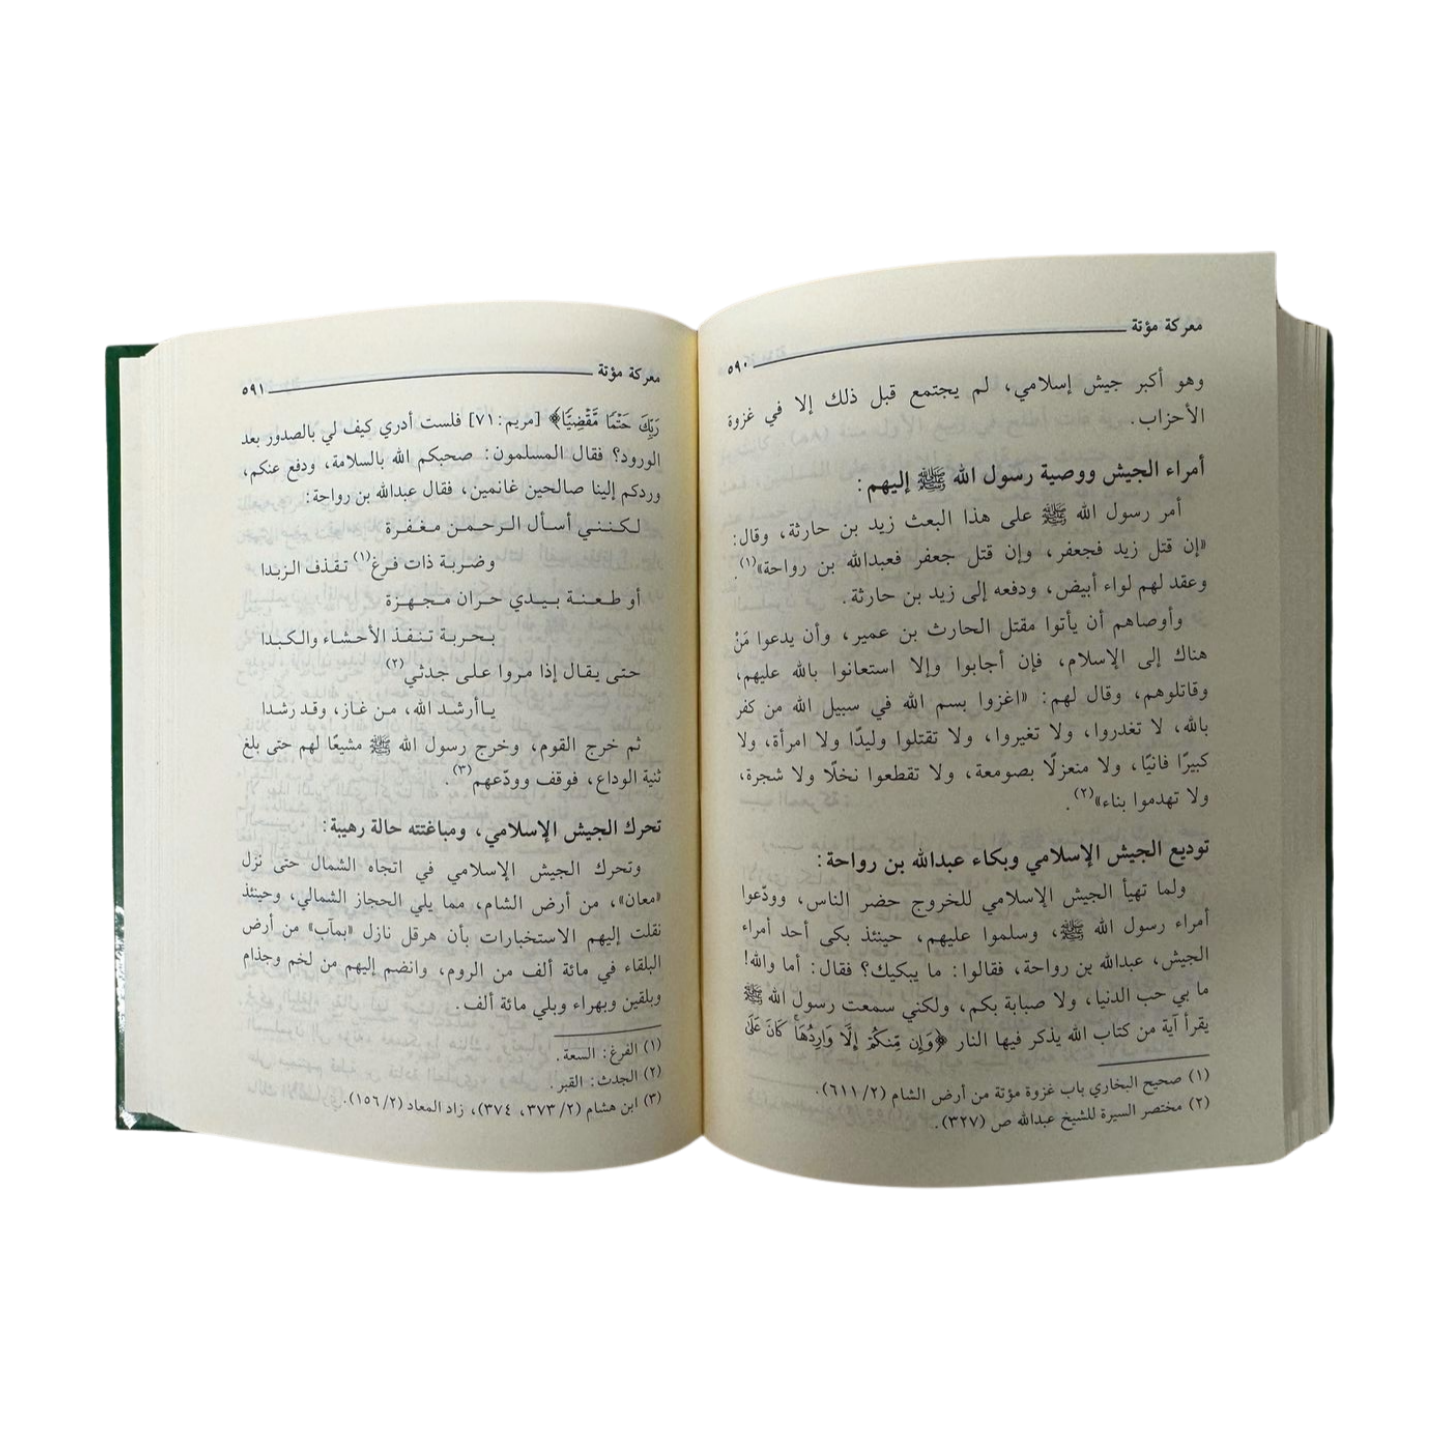 معركة مؤتة ٥٩٠
وهو أكبر جيش إسلامي، لم يجتمع قبل ذلك إلا في غزوة
الأحزاب.
أمراء الجيش ووصية رسول الله ﷺ إليهم:
أمر رسول الله ﷺ على هذا البعث زيد بن حارثة، وقال:
«إن قتل زيد فجعفر، وإن قتل جعفر فعبدالله بن رواحة»(١).
وعقد لهم لواء أبيض، ودفعه إلى زيد بن حارثة.
وأوصاهم أن يأتوا مقتل الحارث بن عمير، وأن يدعوا مَنْ
هناك إلى الإسلام، فإن أجابوا وإلا استعانوا بالله عليهم،
وقاتلوهم، وقال لهم: «اغزوا بسم الله في سبيل الله من كفر
بالله، لا تغدروا، ولا تغيروا، ولا تقتلوا وليدًا ولا امرأة، ولا
كبيرًا فانيًا، ولا منعزلًا بصومعة، ولا تقطعوا نخلًا ولا شجرة،
ولا تهدموا بناء»(٢).
توديع الجيش الإسلامي وبكاء عبدالله بن رواحة:
ولما تهيأ الجيش الإسلامي للخروج حضر الناس، وودّعوا
أمراء رسول الله ﷺ، وسلموا عليهم، حينئذ بكى أحد أمراء
الجيش، عبدالله بن رواحة، فقالوا: ما يبكيك؟ فقال: أما والله!
ما بي حب الدنيا، ولا صبابة بكم، ولكني سمعت رسول الله ﷺ
يقرأ آية من كتاب الله يذكر فيها النار ﴿وَإِن مِّنكُمْ إِلَّا وَارِدُهَا كَانَ عَلَىٰ
(١) صحيح البخاري باب غزوة مؤتة من أرض الشام (٦١١/٢).
(٢) مختصر السيرة للشيخ عبدالله ص (٣٢٧).
معركة مؤتة ٥٩١
رَبِّكَ حَتْمًا مَّقْضِيًّا﴾ [مريم: ٧١] فلست أدري كيف لي بالصدور بعد
الورود؟ فقال المسلمون: صحبكم الله بالسلامة، ودفع عنكم،
وردكم إلينا صالحين غانمين، فقال عبدالله بن رواحة:
لكنني أسأل الرحمن مغفرة
وضربة ذات فرغ(١) تقذف الزبدا
أو طعنة بيدي حران مجهزة
بحربة تنفذ الأحشاء والكبدا
حتى يقال إذا مروا على جدثي(٢)
يا أرشد الله، من غاز، وقد رشدا
ثم خرج القوم، وخرج رسول الله ﷺ مشيعًا لهم حتى بلغ
ثنية الوداع، فوقف وودّعهم(٣).
تحرك الجيش الإسلامي، ومباغتته حالة رهيبة:
وتحرك الجيش الإسلامي في اتجاه الشمال حتى نزل
«معان»، من أرض الشام، مما يلي الحجاز الشمالي، وحينئذ
نقلت إليهم الاستخبارات بأن هرقل نازل «بمآب» من أرض
البلقاء في مائة ألف من الروم، وانضم إليهم من لخم وجذام
وبلقين وبهراء وبلي مائة ألف.
(١) الفرغ: السعة.
(٢) الجدث: القبر.
(٣) ابن هشام (٣٧٣/٢، ٣٧٤)، زاد المعاد (١٥٦/٢).